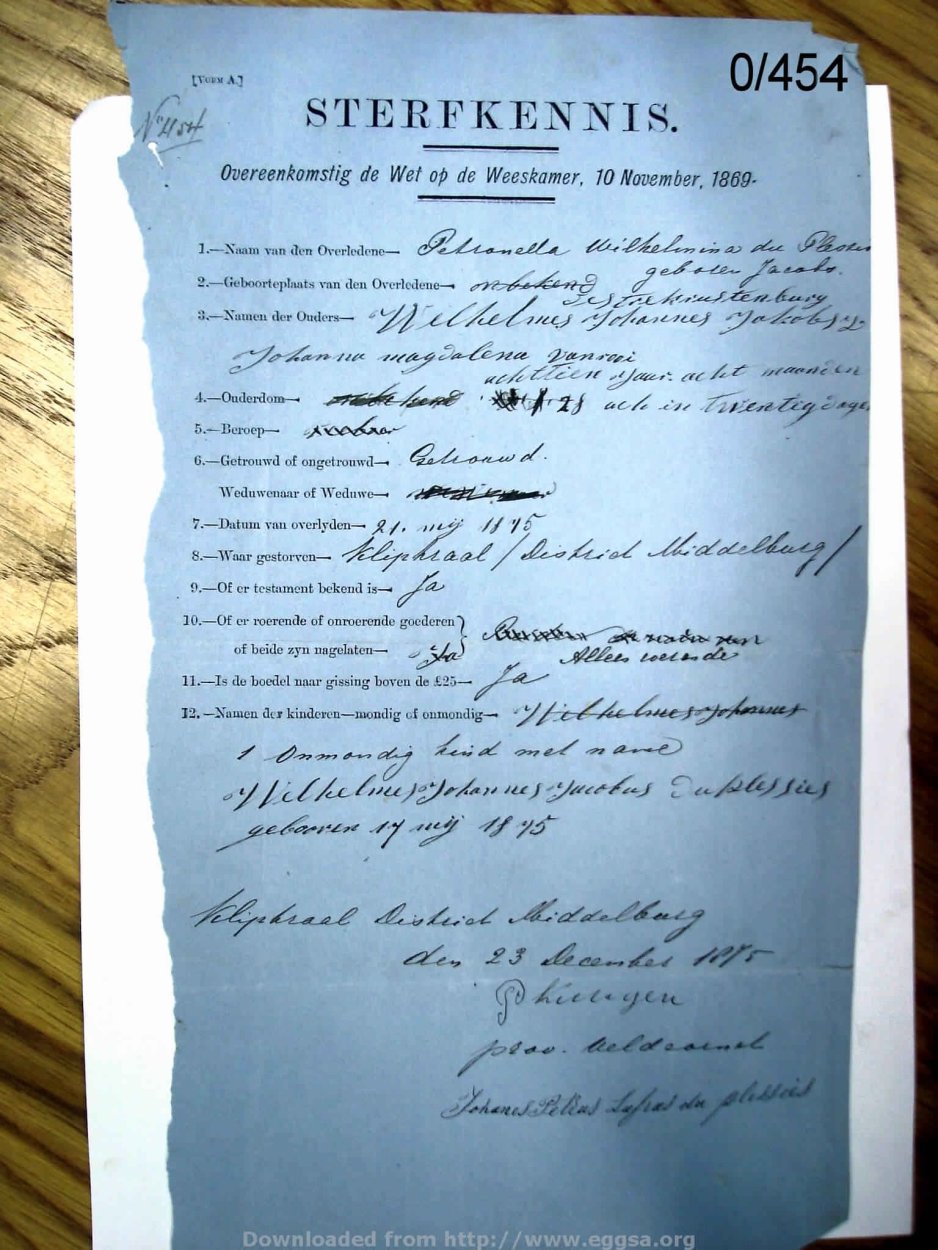 0/454
[VORM A.]
No 454
STERFKENNIS.
Overeenkomstig de Wet op de Weeskamer, 10 November, 1869.
1.—Naam van den Overledene— Petronella Wilhelmina du Plessis
geboren Jacobs.
2.—Geboorteplaats van den Overledene— onbekend
Destrek rustenburg
3.—Namen der Ouders— Wilhelmes Johannes Jakobs &
Johanna magdalena vanrooi
achttien Jaar acht maanden
4.—Ouderdom— onbekend 28 ach in Twentig dage
5.—Beroep—
6.—Getrouwd of ongetrouwd— Getrouwd.
Weduwenaar of Weduwe—
7.—Datum van overlyden— 21. mij 1875
8.—Waar gestorven— Klipkraal / District Middelburg /
9.—Of er testament bekend is— Ja
10.—Of er roerende of onroerende goederen
of beide zyn nagelaten— Ja Allees roerende
11.—Is de boedel naar gissing boven de £25— Ja
12.—Namen der kinderen—mondig of onmondig— Wilhelmes Johannes
1 Onmondig kind met name
Wilhelmes Johannes Jacobus duplessies
gebooren 17 mij 1875
Klipkraal District Middelburg
den 23 December 1875
prov. Veldcornet
Johanes Petrus Lafras du plessies
Downloaded from http://www.eggsa.org